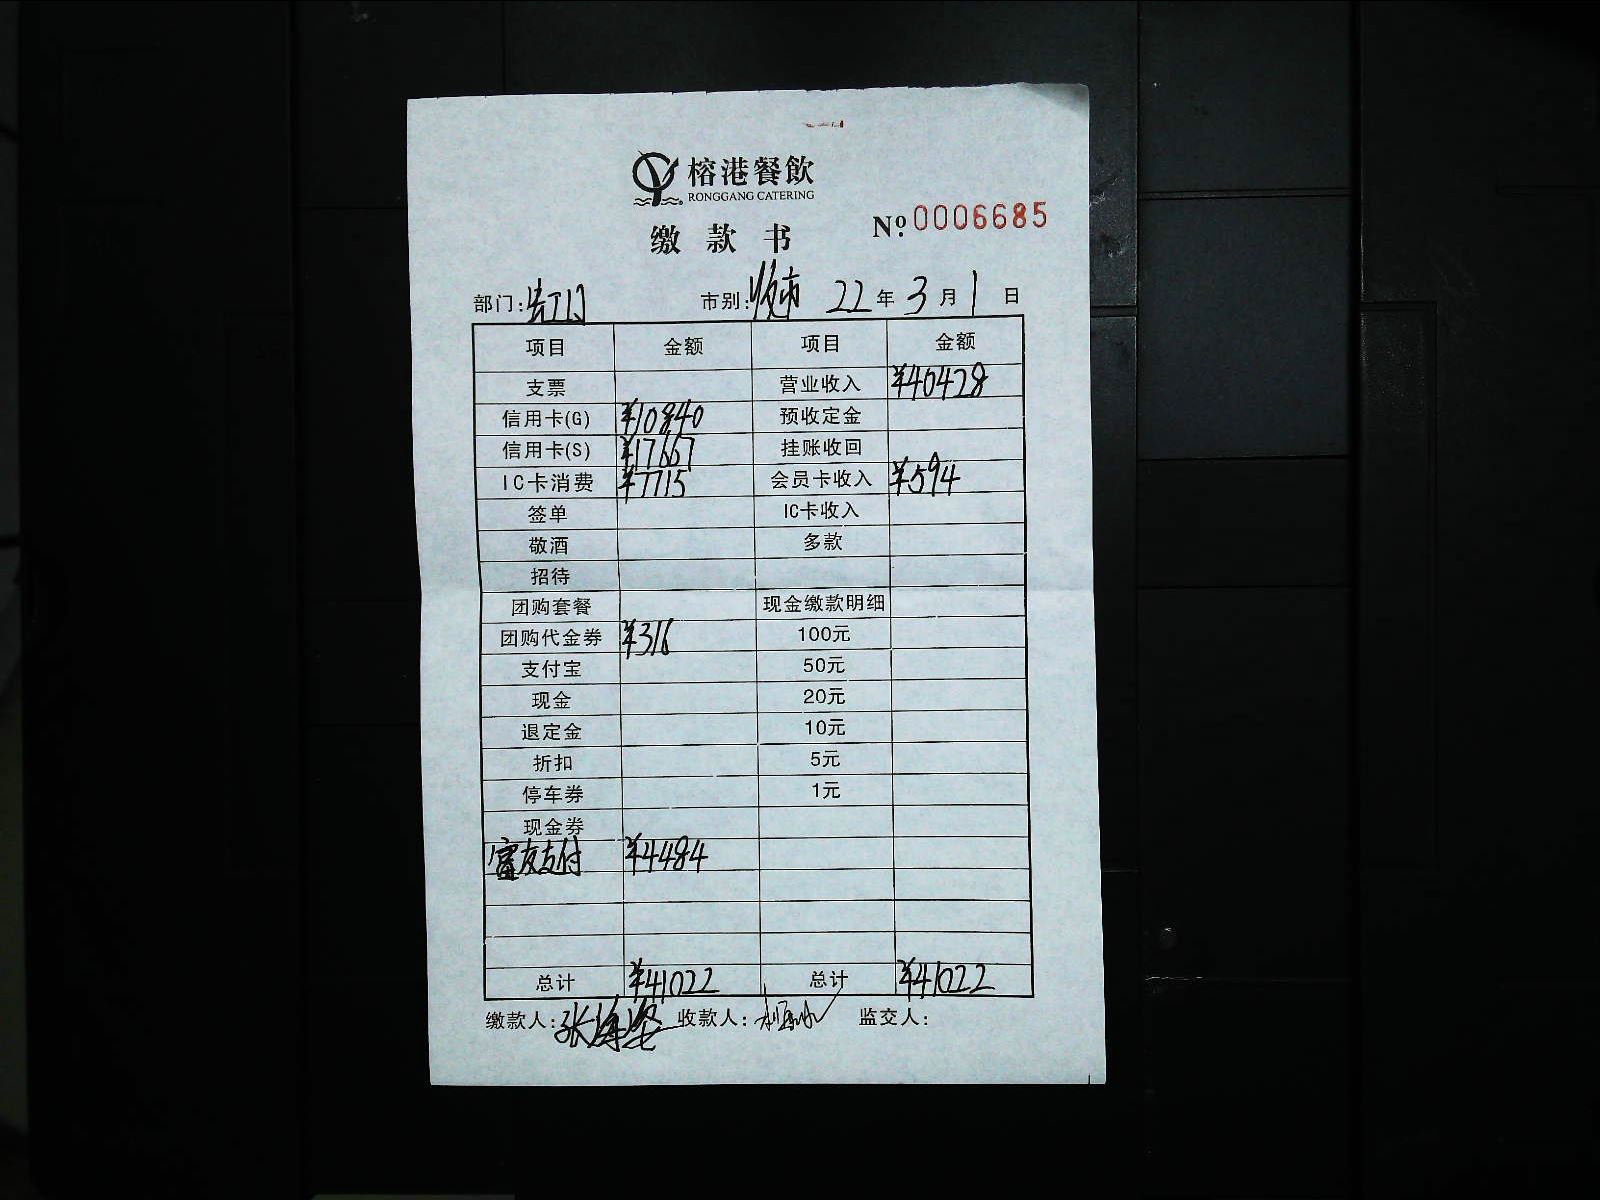 榕港餐飲
RONGGANG CATERING
缴款书
Nº 0006685
部门: 市别:晚市 22年3月1日
项目 金额 项目 金额
支票 营业收入 ¥40428
信用卡(G) ¥10840 预收定金
信用卡(S) ¥17667 挂账收回
IC卡消费 ¥7715 会员卡收入 ¥594
签单 IC卡收入
敬酒 多款
招待
团购套餐 现金缴款明细
团购代金券 ¥316 100元
支付宝 50元
现金 20元
退定金 10元
折扣 5元
停车券 1元
现金券
富友支付 ¥4484
总计 ¥41022 总计 ¥41022
缴款人: 收款人: 监交人: